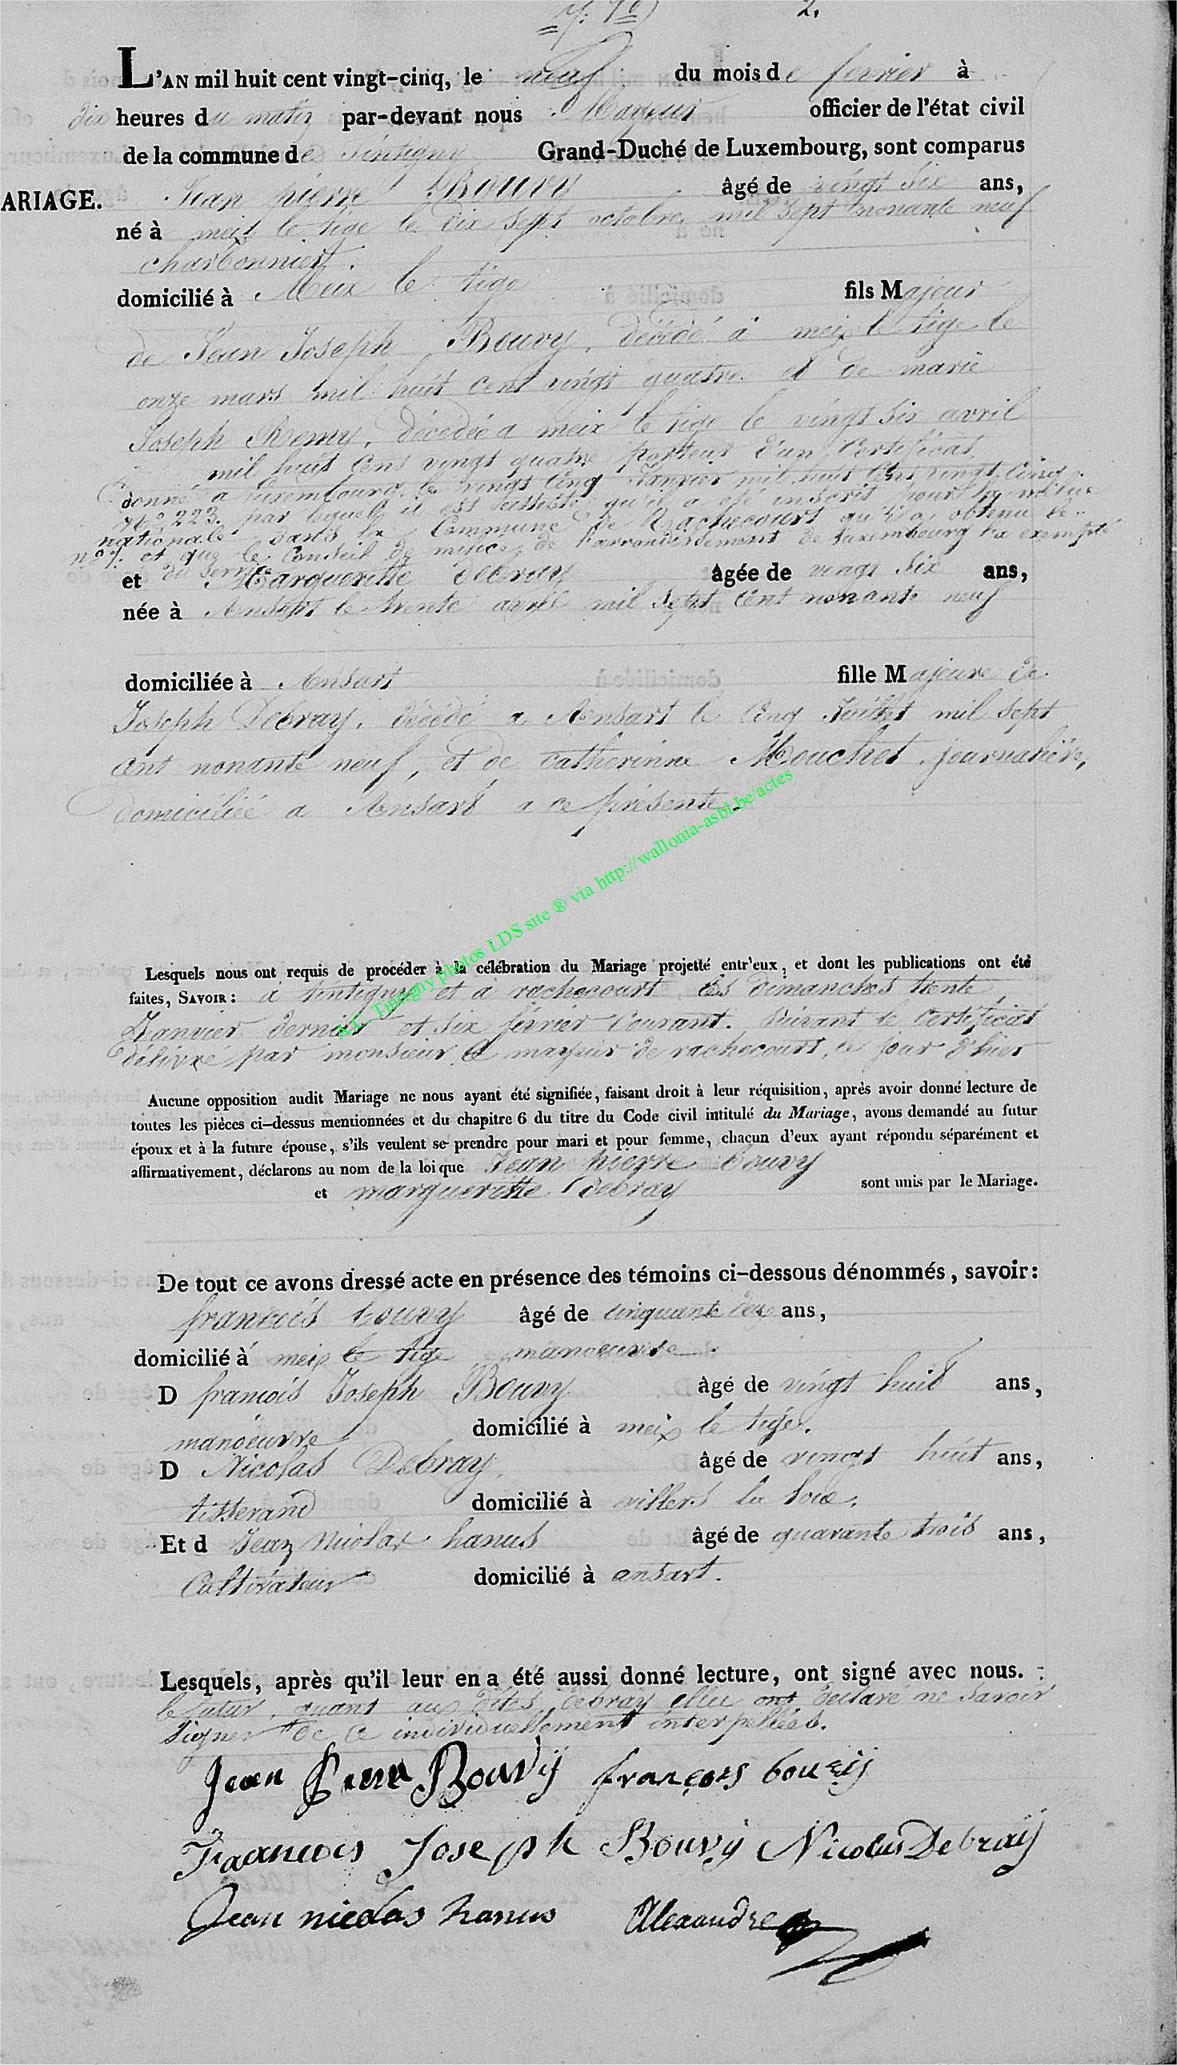 2.
L'AN mil huit cent vingt-cinq, le neuf du mois de fevrier à
dix heures du matin par-devant nous Mayeur officier de l'état civil
de la commune de tintigny Grand-Duché de Luxembourg, sont comparus
ARIAGE. Jean pierre Bouvy âgé de vingt six ans,
né à meix le tige le dix sept octobre mil sept nonante neuf
charbonnier.
domicilié à Meix le tige fils Majeur
de Jean Joseph Bouvy, décédé à meix le tige le
onze mars mil huit cent vingt quatre et de marie
Joseph Remy, décédée a meix le tige le vingt six avril
mil huit cens vingt quatre porteur d'un Certificat
donné a Luxembourg le vingt cinq Janvier mil huit cens vingt cinq
N° 223. par lequel il est qu'il a été inscrit pour la milice
nationale dans la Commune de Rachecourt qu'il a obtenu le
n° et que le Conseil de milice de l'arrondissement de Luxembourg l'a exempté
du service
et Margueritte Debray âgée de vingt six ans,
née à Ansart le trente avril mil sept cent nonante neuf
domiciliée à Ansart fille Majeure de
Joseph Debray, décédé a Ansart le cinq Juillet mil sept
cent nonante neuf, et de catherinne Mouchet journalière,
domiciliée a Ansart a ce présente.
A.L. Tintigny photos LDS site ® via http://wallonia-asbl.be/actes
Lesquels nous ont requis de procéder à la célébration du Mariage projetté entr'eux, et dont les publications ont été
faites, SAVOIR: à tintigny et a rachecourt les dimanches trente
Janvier dernier et six février Courant. suivant le Certificat
délivré par monsieur le mayeur de rachecourt, le jour d'hier
Aucune opposition audit Mariage ne nous ayant été signifiée, faisant droit à leur réquisition, après avoir donné lecture de
toutes les pièces ci-dessus mentionnées et du chapitre 6 du titre du Code civil intitulé du Mariage, avons demandé au futur
époux et à la future épouse, s'ils veulent se prendre pour mari et pour femme, chacun d'eux ayant répondu séparément et
affirmativement, déclarons au nom de la loi que Jean pierre bouvy
et margueritte Debray sont unis par le Mariage.
De tout ce avons dressé acte en présence des témoins ci-dessous dénommés, savoir:
francois bouvy âgé de cinquante deux ans,
domicilié à meix le tige manoeuvre.
D francois Joseph Bouvy âgé de vingt huit ans,
manoeuvre domicilié à meix le tige.
D Nicolas Debray, âgé de vingt huit ans,
tisserand domicilié à villers la loue,
Et d Jean Nicolas hanus âgé de quarante trois ans,
Cultivateur domicilié à ansart.
Lesquels, après qu'il leur en a été aussi donné lecture, ont signé avec nous.
le futur, quant aux dites debray elles ont declaré ne savoir
signer de ce individuellement interpellées.
Jean Pierre Bouvÿ françois bouvÿ
Francois Joseph Bouvÿ Nicolas Debraÿ
Jean nicolas hanus Alexandre